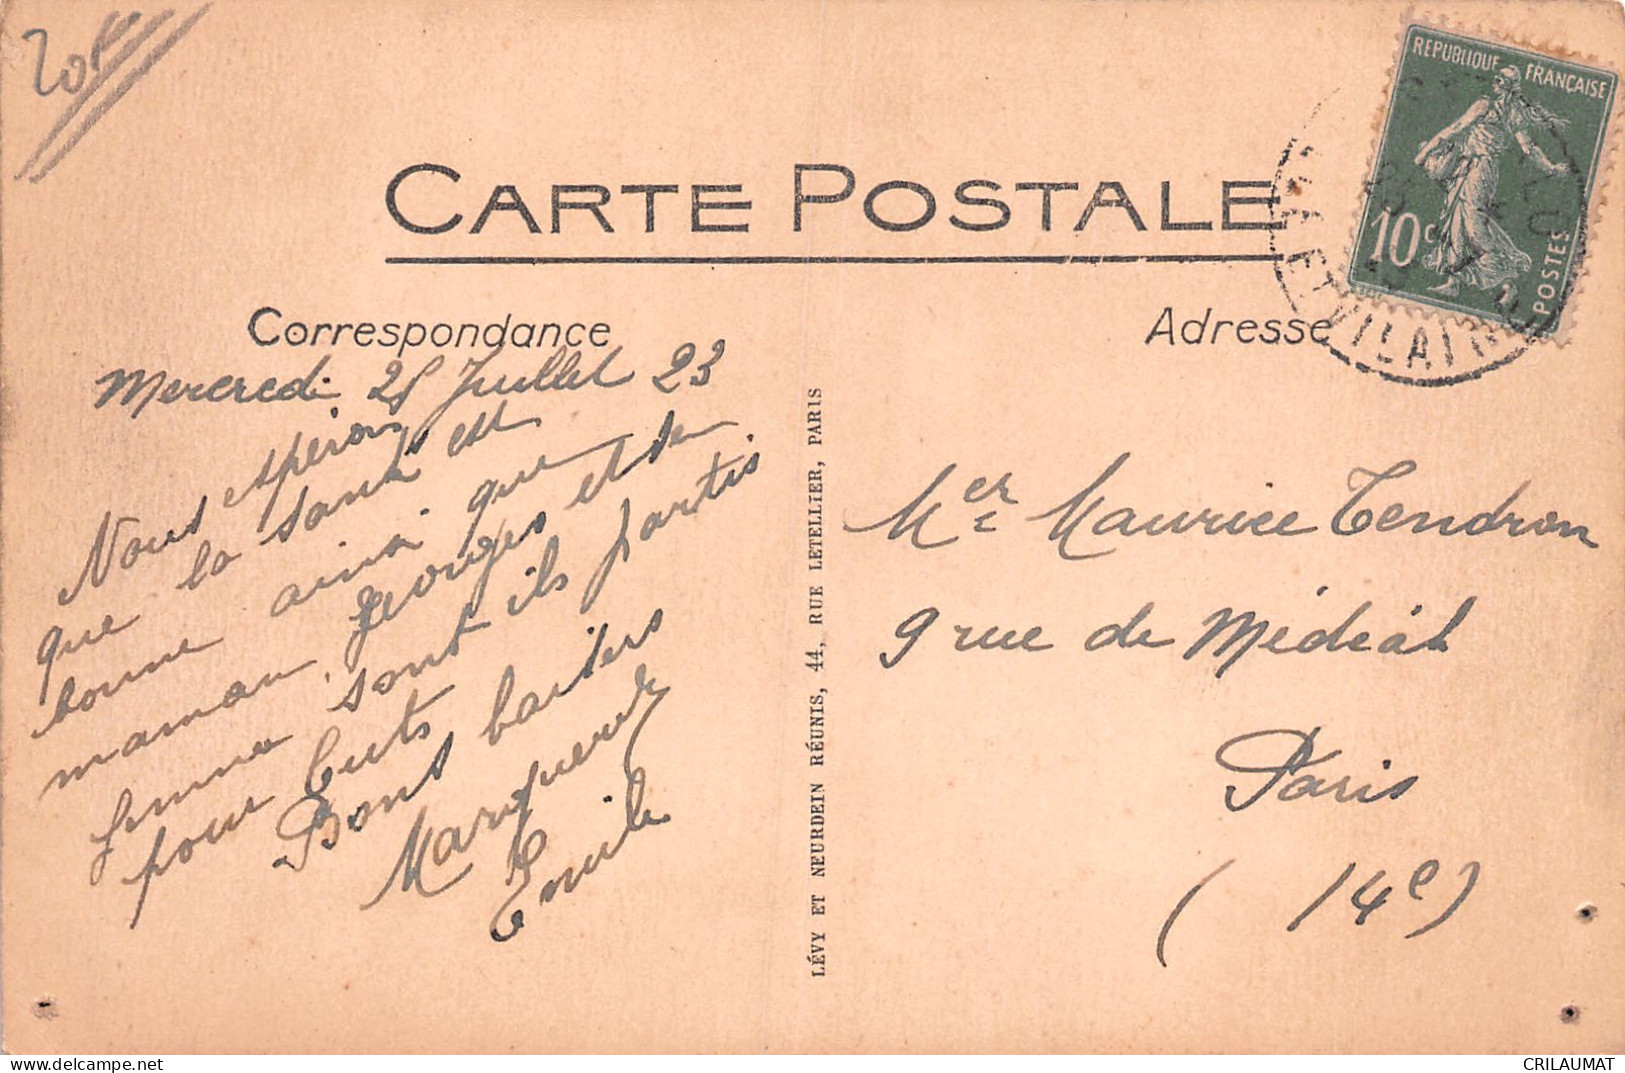 20f
CARTE POSTALE
REPUBLIQUE FRANÇAISE
10c
POSTES
ILLE ET VILAINE
Correspondance
Mercredi 25 Juillet 23
Nous espérons
que la santé est
bonne ainsi que
maman. Georges et sa
femme sont ils partis
pour Cuts
Bons baisers
Marguerite
Emile
LÉVY ET NEURDEIN RÉUNIS, 44, RUE LETELLIER, PARIS
Adresse
Mer Maurice Tendron
9 rue de Médéah
Paris
(14e)
CRILAUMAT